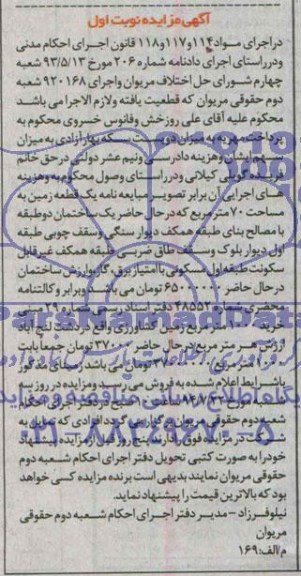 آگهی مزایده نوبت اول
در اجرای مواد ۱۱۴ و ۱۱۷ و ۱۱۸ قانون اجرای احکام مدنی
و در راستای اجرای دادنامه شماره ۲۰۶ مورخ ۹۳/۵/۱۳ شعبه
چهارم شورای حل اختلاف مریوان و اجرای ۹۲۰۱۶۸ شعبه
دوم حقوقی مریوان که قطعیت یافته و لازم الاجرا می باشد
محکوم علیه آقای علی روزخش و فانوس خسروی محکوم به
پرداخت مهریه به میزان دویست سکه بهار آزادی به میزان
سهم ایشان و هزینه دادرسی و نیم عشر دولتی در حق خانم
فریده گویلی کیلانی و در راستای وصول محکوم به و هزینه
های اجرایی آن برابر تصویر مبایعه نامه یک قطعه زمین به
مساحت ۷۰ متر مربع که در حال حاضر یک ساختمان دو طبقه
با مصالح بنای طبقه همکف دیوار سنگی و سقف چوبی طبقه
اول دیوار بلوک و سقف طاق ضربی طبقه همکف غیر قابل
سکونت طبقه اول مسکونی با امتیاز برق، گاز و ارزش ساختمان
در حال حاضر ۶۵۰۰۰۰۰۰ تومان می باشد و برابر وکالتنامه
محضری شماره ۴۸۵۵۲ دفتر اسناد رسمی شماره ۲۹ مبنی
خرید ۱۰۰۰ متر مربع زمین کشاورزی واقع در دشت لنج آباد
ارزش هر متر مربع در حال حاضر ۳۷۰۰۰ تومان جمعا بابت
۱۰۰۰ متر مربع ۳۷۰۰۰۰۰۰ تومان می باشد
با شرایط اعلام شده به فروش می رسد و مزایده در روز سه
شنبه مورخ ساعت ۱۰ صبح در دفتر اجرای احکام
شعبه دوم حقوقی مریوان برگزار می گردد افرادی که تمایل به
شرکت در مزایده فوق را دارند پنج روز قبل از مزایده پیشنهاد
خود را به صورت کتبی تحویل دفتر اجرای احکام شعبه دوم
حقوقی مریوان نمایند بدیهی است برنده مزایده کسی خواهد
بود که بالاترین قیمت را پیشنهاد نماید.
نیلوفر زاد - مدیر دفتر اجرای احکام شعبه دوم حقوقی
مریوان
م/الف: ۱۶۹